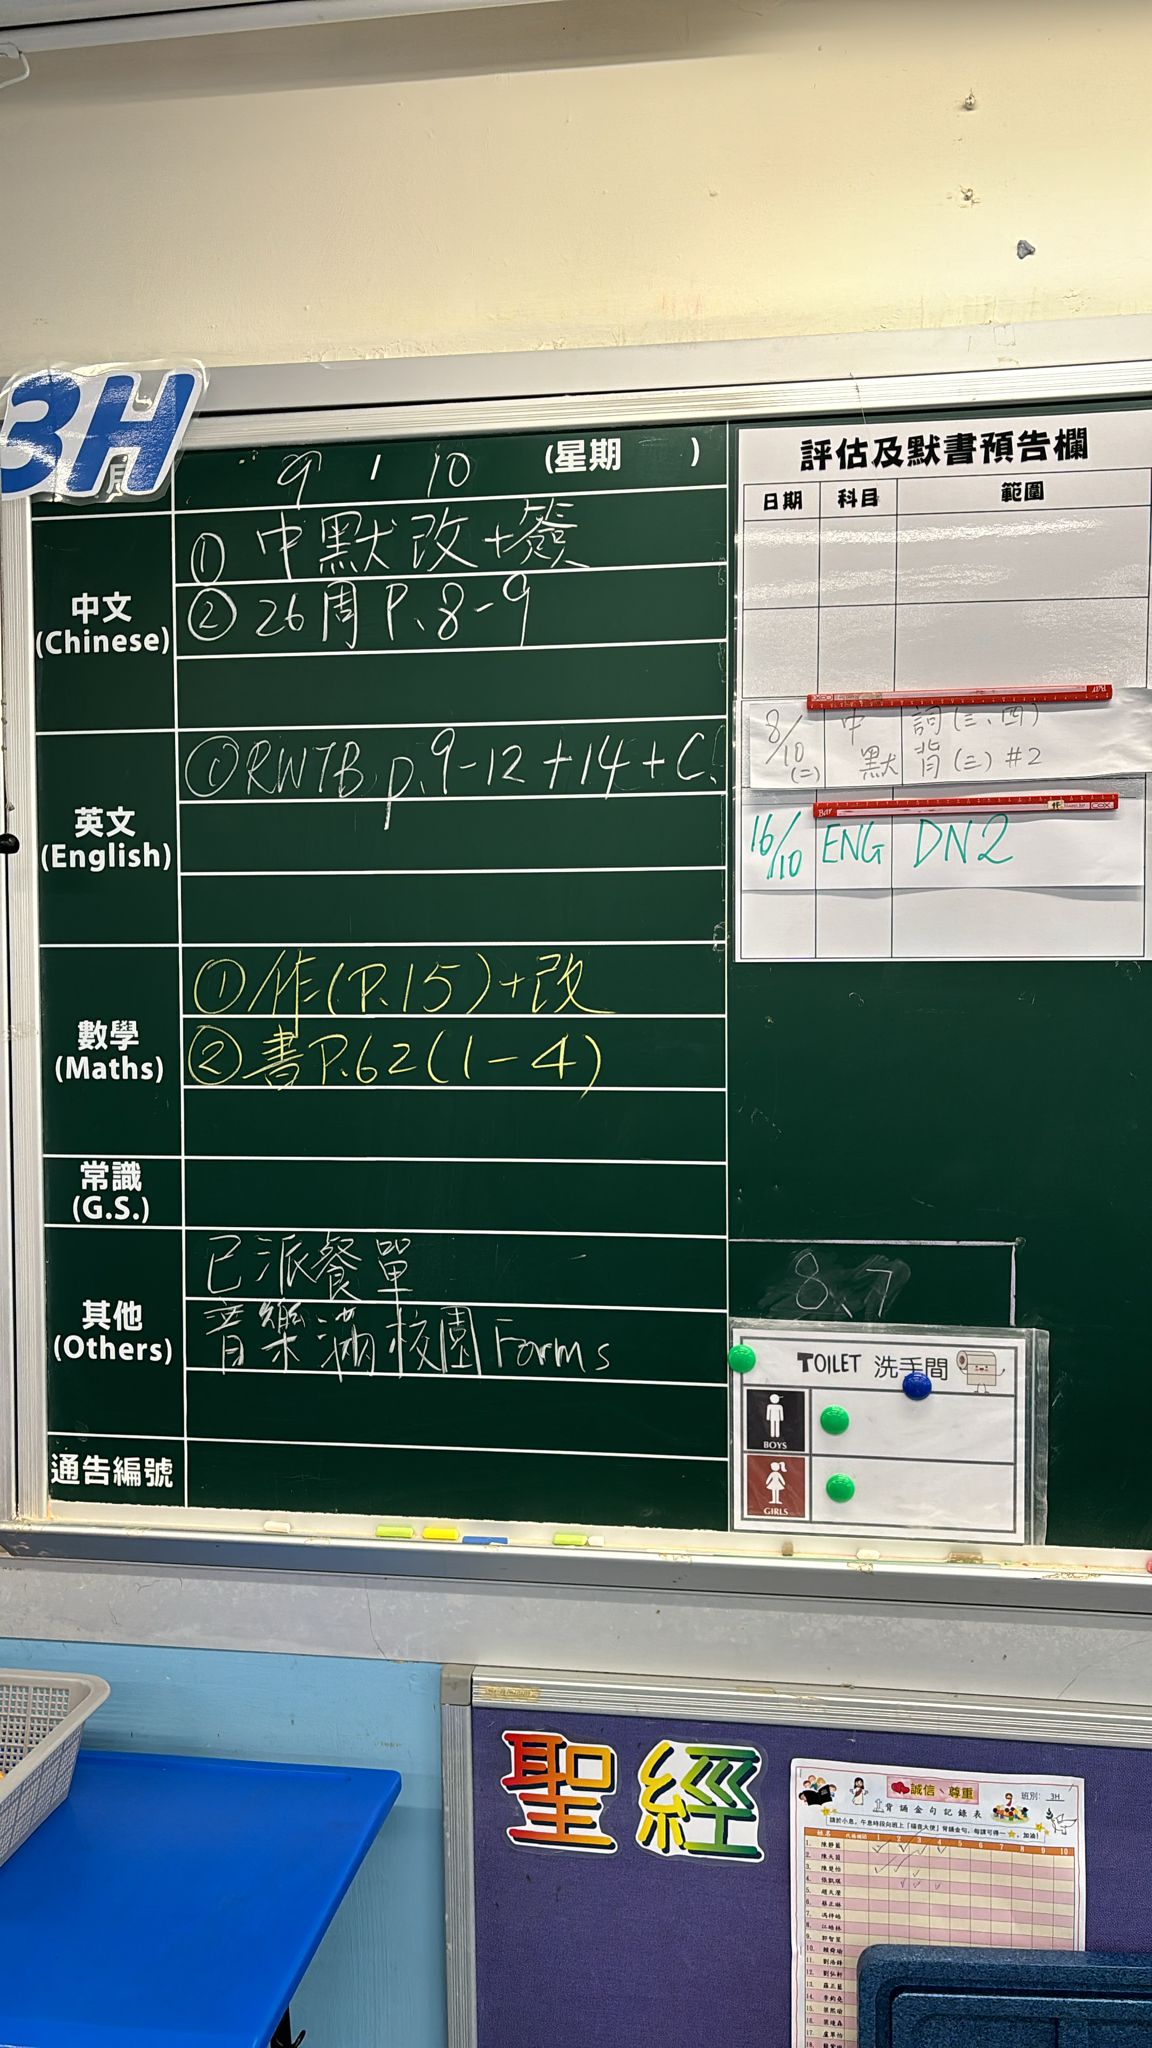 3H
月 9 / 10 (星期 )
中文
(Chinese)
① 中默改+簽
② 26周 P.8-9
英文
(English)
① RWTB p.9-12+14+C.
數學
(Maths)
① 作(P.15)+改
② 書P.62(1-4)
常識
(G.S.)
其他
(Others)
已派餐單
音樂滿校園 Forms
通告編號
評估及默書預告欄
日期 科目 範圍
8/10 (二) 中默 詞(三、四) 背(三)#2
16/10 ENG DN2
8、7
TOILET 洗手間
BOYS
GIRLS
聖經
誠信、尊重
班別: 3H
背誦金句記錄表
姓名 1 2 3 4 5 6 7 8 9 10